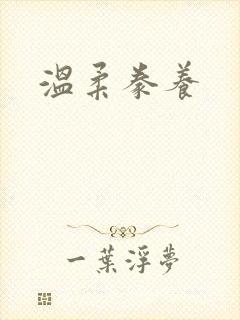 溫柔豢養
一葉浮夢